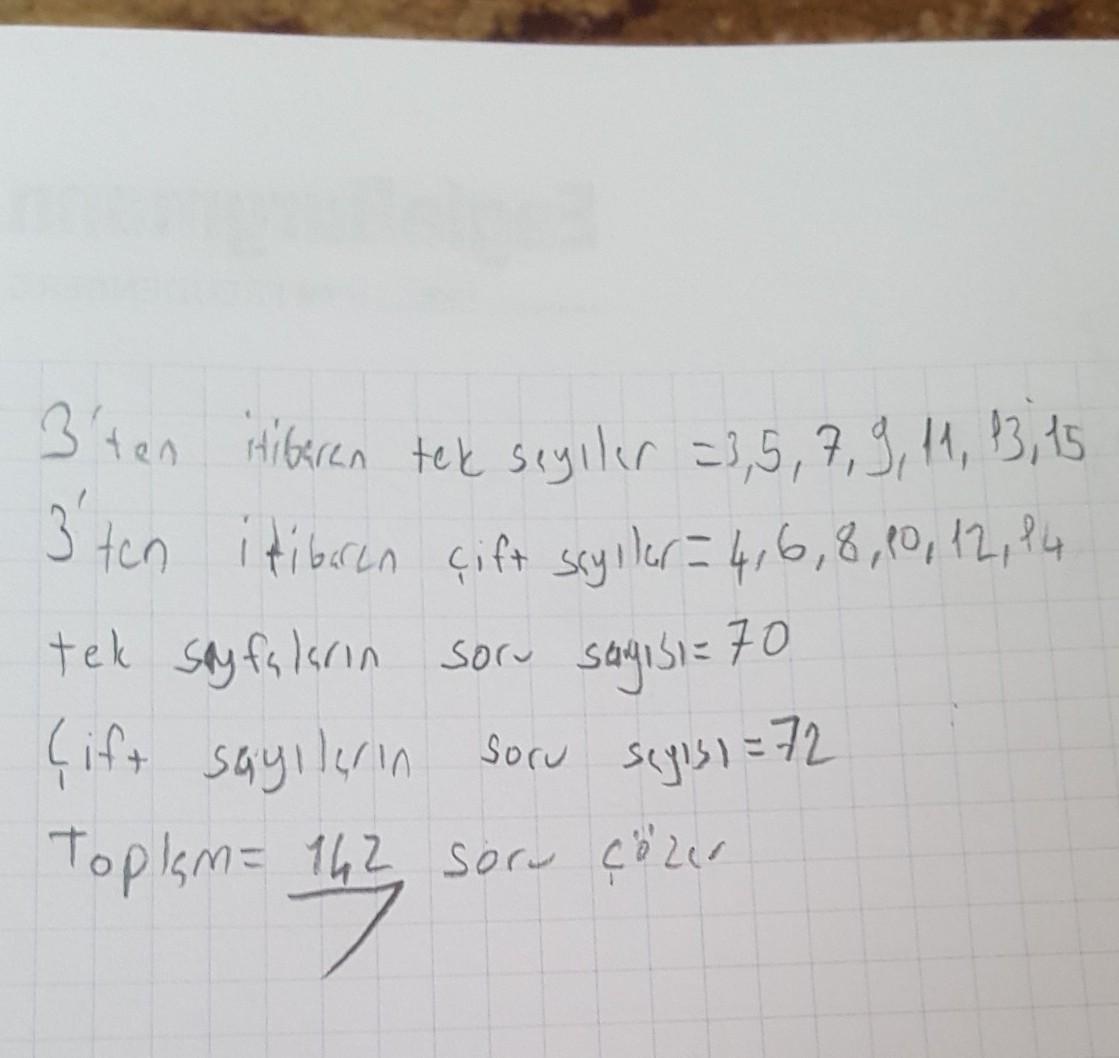 3'ten itibaren tek sayılar =3,5,7,9,11,13,15
3'ten itibaren çift sayılar=4,6,8,10,12,14
tek sayfaların soru sayısı=70
Çift sayıların soru sayısı=72
Toplam= 142 soru çözer